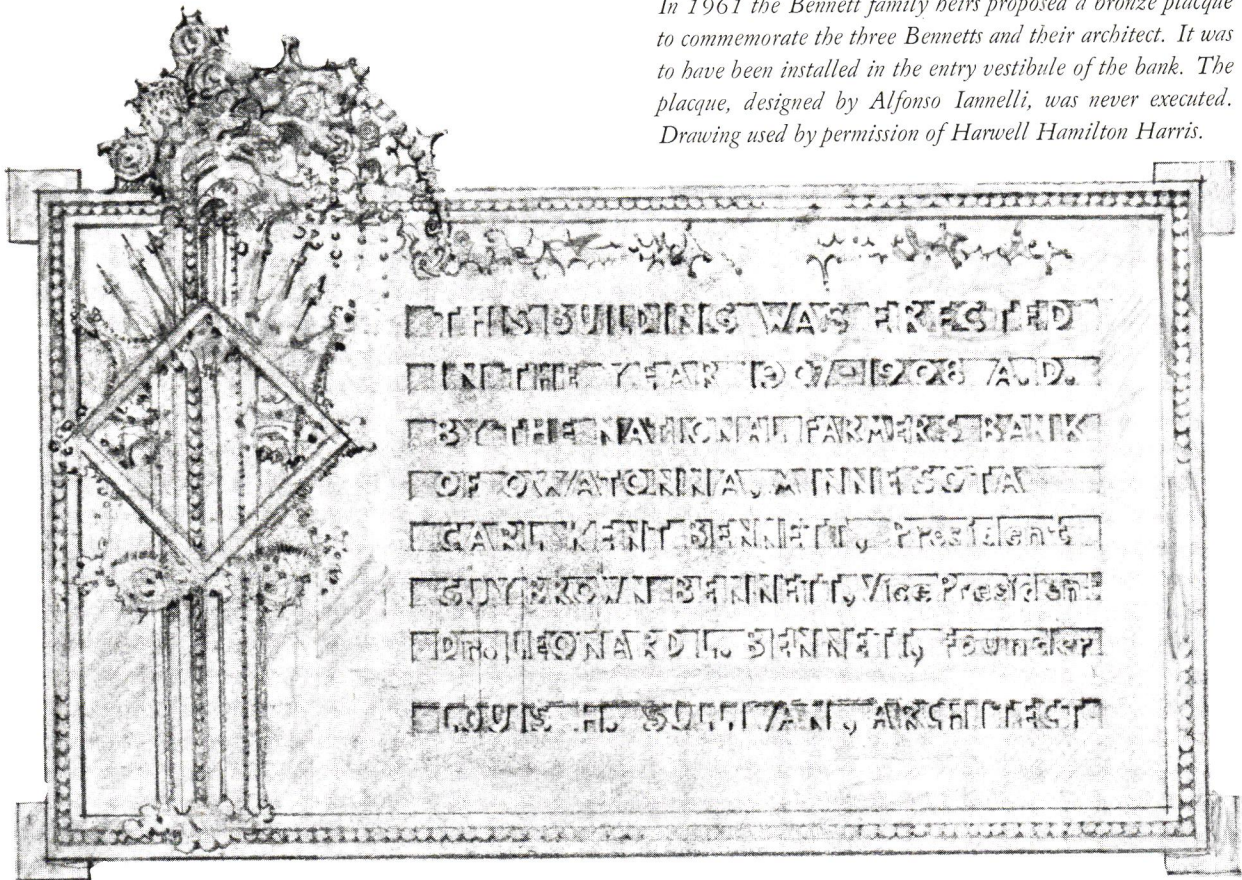 In 1961 the Bennett family heirs proposed a bronze placque
to commemorate the three Bennetts and their architect. It was
to have been installed in the entry vestibule of the bank. The
placque, designed by Alfonso Iannelli, was never executed.
Drawing used by permission of Harwell Hamilton Harris.
THIS BUILDING WAS ERECTED
IN THE YEAR 1907-1908 A.D.
BY THE NATIONAL FARMERS BANK
OF OWATONNA, MINNESOTA
CARL KENT BENNETT, President
GUY BROWN BENNETT, Vice President
Dr. LEONARD L. BENNETT, Founder
LOUIS H. SULLIVAN, ARCHITECT